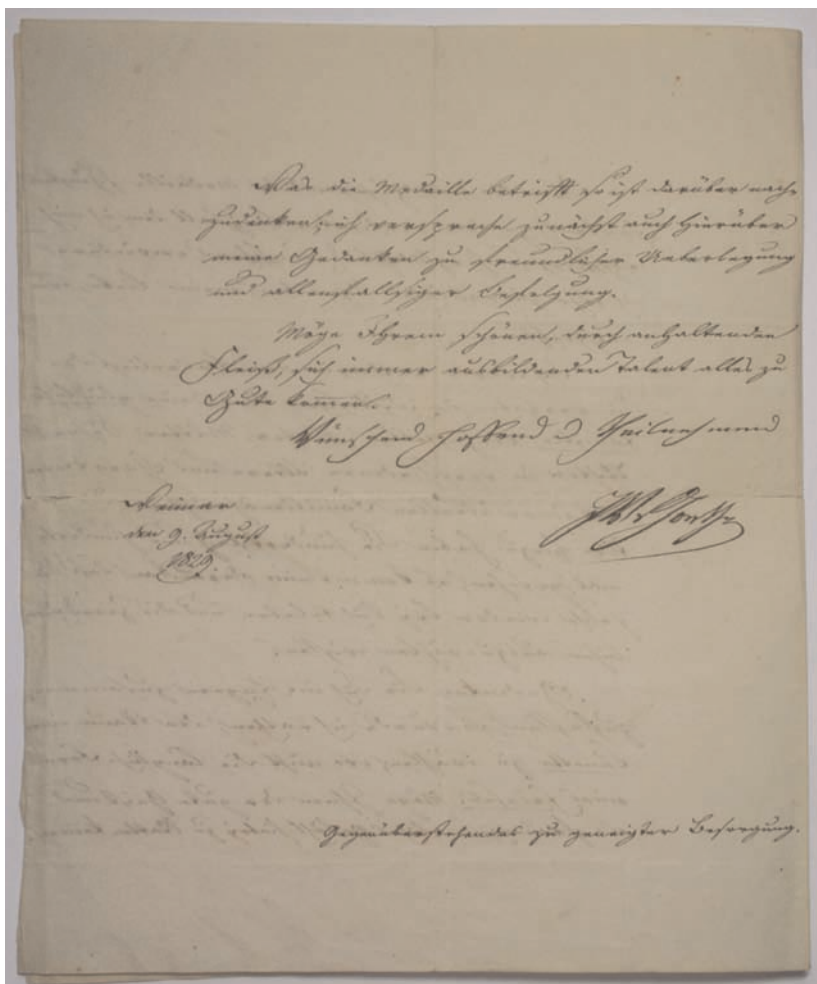 Was die Medaille betrifft so ist darüber nach-
zudenken; ich verspreche zunächst auch hierüber
meine Gedanken zu freundlicher Ueberlegung
und allenfallsiger Befolgung.
Möge Ihrem schönen, durch anhaltenden
Fleiß, sich immer ausbildenden Talent alles zu
Gute kommen.
Wünschend hoffend u Theilnehmend
Weimar
JWvGoethe
den 9. August
1829
Gegenüberstehendes zu geneigter Besorgung.